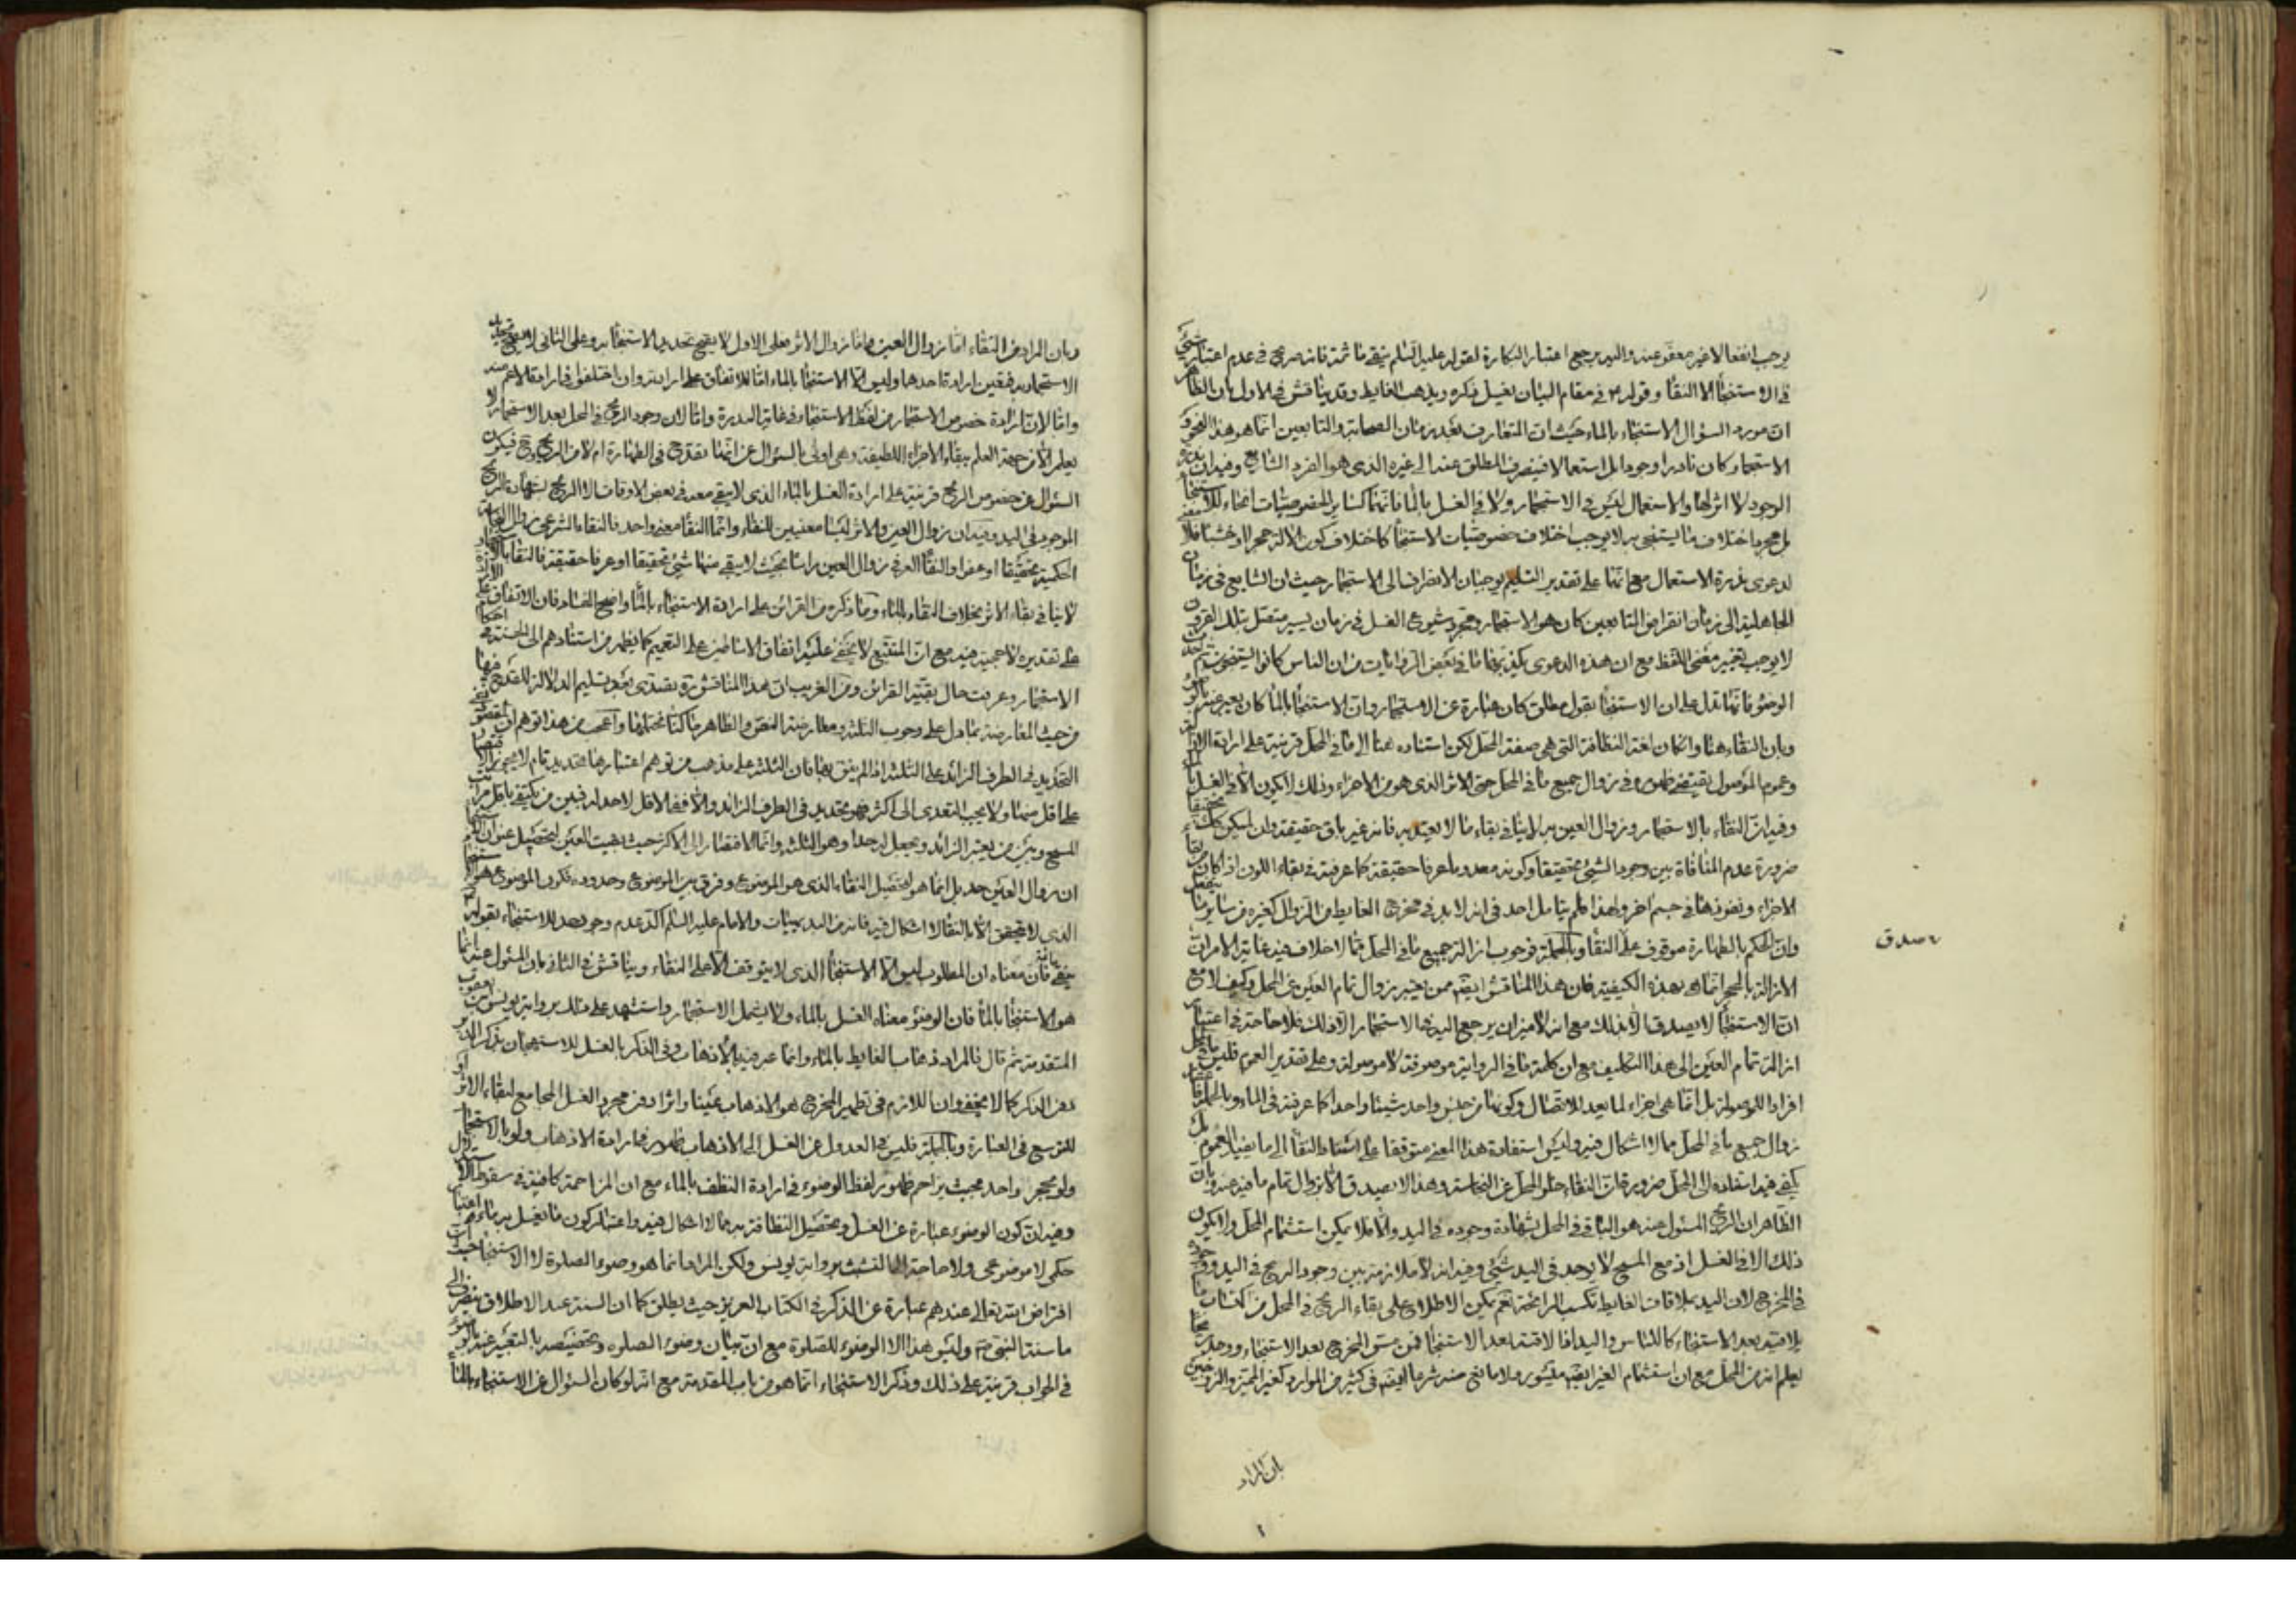 يوجب انفعالا غير معفو عنه واليه يرجع اعتبار البكارة لقوله عليه السلم ينقى ما ثمة فانه صريح في عدم اعتبار شئ
في الاستنجاء الا النقاء وقوله في مقام البيان يغسل ذكره ويذهب الغايط وقد يناقش في الاول بان الظاهر
ان مورد السؤال الاستنجاء بالماء حيث ان المتعارف بعد زمان الصحابة والتابعين انما هو هذا النحو و
الاستجمار كان نادرا وجودا بل استعمالا فينصرف المطلق عنه الى غيره الذي هو الفرد الشايع وفيه ان ندرة
الوجود لا اثر لها والاستعمال ليس في الاستجمار ولا في الغسل بالماء فانهما كساير الخصوصيات انحاء للاستنجاء
بل مجرد اختلاف ما يستنجى به لا يوجب اختلاف خصوصيات الاستنجاء كاختلاف كون الآلة حجرا او خشبا فلا
لدعوى ندرة الاستعمال مع انها على تقدير التسليم يوجبان الانصراف الى الاستجمار حيث ان الشايع في زمان
الجاهلية الى زمان انقراض التابعين كان هو الاستجمار ومجرد شيوع الغسل في زمان يسير متصل بتلك القرون
لا يوجب تغيير معنى اللفظ مع ان هذه الدعوى يكذبها ما في بعض الروايات من ان الناس كانوا يستنجون
الوضوء فانها تدل على ان الاستنجاء بقول مطلق كان عبارة عن الاستجمار وان الاستنجاء بالماء كان يعبر عنه بالوضوء
وبان النقاء هنا وان كان لغة النظافة التي هي صفة المحل لكن اسناده هنا الى ما في المحل قرينة على ارادة الازالة
وعموم الموصول يقتضي ظهوره في زوال جميع ما في المحل حتى الاثر الذي هو من الاجزاء وذلك لا يكون الا في الغسل
وفيه ان النقاء بالاستجمار وزوال العين به لا ينافي بقاء ما لا يعتد به فانه غير باق حقيقة وان لم يكن كك تحقيقا
ضرورة عدم المنافاة بين وجود الشئ تحقيقا وكونه معدوما عرفا حقيقة كما عرفته في بقاء اللون اذا كان
الاجزاء ونفوذها في جسم اخر ولهذا لم يتامل احد في انه لا بد في مخرج الغايط من الزوال كغيره من ساير
وان الحكم بالطهارة موقوف على النقاء وبالجملة فوجوب ازالة جميع ما في المحل مما لا خلاف فيه غاية الامر ان
صدق
الازالة بالحجر انما هي بهذه الكيفية فان هذا المناقش ايضا ممن يعتبر زوال تمام العين عن المحل وكيف لا مع
ان الاستنجاء لا يصدق الا بذلك مع انه لا ميزان يرجع اليه في الاستجمار الا ذلك فلا حاجة في اعتبار
ازالة تمام العين الى هذا التكليف مع ان كلمة ما في الرواية موصوفة لا موصولة وعلى تقدير العموم فليس
افراد الموصولة بل انما هي اجزاء لما بعد الانفصال وكونها من جنس واحد شيئا واحدا كما عرفته في الماء وبالجملة
زوال جميع ما في المحل مما لا اشكال فيه وليس استفادة هذا المعنى متوقفا على اسناد النقاء الى ما يفيد العموم
يكفي فيه استناده الى المحل ضرورة ان النقاء خلو المحل عن النجاسة وهذا لا يصدق الا بزوال تمام ما فيه عنه وبان
الظاهر ان الريح المسئول عنه هو الباقي في المحل بشهادة وجوده في اليد والا فلا يمكن استشمام المحل ولا يكون
ذلك الا في الغسل اذ مع المسح لا يوجد في اليد شئ وفيه انه لا ملازمة بين وجود الريح في اليد ووجوده
في المخرج لان اليد بملاقات الغايط تكسب الرائحة نعم يمكن الاطلاع على بقاء الريح في المحل من اكتساب
يلاقيه بعد الاستنجاء كاللباس واليد اذا لاقته بعد الاستنجاء فمن مس المخرج بعد الاستنجاء ووجد ريحا
يعلم انه من المحل مع ان استشمام الغير ايضا ميسور ولا مانع منه شرعا ايضا في كثير من الموارد كغير المميز والزوجين
بان المراد
وبان المراد من النقاء اما زوال العين واما زوال الاثر فعلى الاول لا يصح تحديد الاستنجاء به وعلى الثاني لا يصح تحديد
الاستجمار به فتعين ارادة احدهما وليس الا الاستنجاء بالماء اما للاتفاق على ارادته وان اختلفوا في ارادة الاعم منه
واما لان ارادة خصوص الاستجمار من لفظ الاستنجاء في غاية الندرة واما لان وجود الريح في المحل بعد الاستجمار لا
يعلم الا من جهة العلم ببقاء الاجزاء اللطيفة وهي اولى بالسؤال عن انها تقدح في الطهارة ام لا من الريح فيكون
السؤال عن خصوص الريح قرينة على ارادة الغسل بالماء الذي لا يبقى معه في بعض الاوقات الا الريح بشهادة الريح
الموجود في اليد وفيه ان زوال العين والاثر ليسا معنيين للنقاء وانما النقاء معنى واحد فالنقاء الشرعي زوال النجاسة
الحكمية تحقيقا او عفوا والنقاء العرفي زوال العين راسا بحيث لا يبقى منها شئ تحقيقا او عرفا حقيقة فالنقاء بالاحجار
لا ينافي بقاء الاثر بخلاف النقاء بالماء وما ذكره من القرائن على ارادة الاستنجاء بالماء واضح الفساد فان الاتفاق
على تقديره لا حجية فيه مع ان المتتبع لا يخفى عليه اتفاق الاساطين على التعميم كما يظهر من استنادهم الى الحسنة في احكام
الاستجمار وعرفت حال بقية القرائن ومن الغريب ان هذا المناقش تصدى بعد تسليم الدلالة للقدح فيها
من حيث المعارضة بما دل على وجوب التثليث ومعارضة النص والظاهر مما كنا نتحمله واعجب من هذا توهم ان المقصود
التحديد في الطرف الزائد على الثلثة اذا لم ينق بها فان الثلثة على مذهب من توهم اعتبارها تحديد تام لا يجوز الاقتصار
على اقل منها ولا يجب التعدي الى اكثر فهو تحديد في الطرف الزائد والا ففي الاقل لاحد ان فبين من يكتفي باقل مراتب
المسح وبين من يعتبر الزائد ويجعل له حدا وهو الثلثة وانما الافتقار الى الاكثر حيث بقيت العين لتحصيل عنوان
ان زوال العين حد بل انما هو لتحصيل النقاء الذي هو الموضوع وفرق بين الموضوع وحدوده فكون الموضوع هو الاستنجاء
الذي لا يتحقق الا بالنقاء لا اشكال فيه فانه من البديهيات والامام عليه السلم اكد عدم وجود حد للاستنجاء بقوله
ينقى فان معناه ان المطلوب ليس الا الاستنجاء الذي لا يتوقف الا على النقاء ويناقش في الثاني بان المسئول عنه انما
هو الاستنجاء بالماء فان الوضوء معناه الغسل بالماء ولا يشمل الاستجمار واستشهد على ذلك برواية يونس بن يعقوب
المتقدمة ثم قال فالمراد ذهاب الغايط بالماء وانما عبر فيه بالاذهاب وفي الذكر بالغسل للاستهجان بذكر الدبر
دون الذكر كما لا يخفى وان اللازم في تطهير المخرج هو الاذهاب عينا واثرا دون مجرد الغسل المجامع لبقاء الاثر او
للتوسع في العبارة وبالجملة فليس في العدول عن الغسل الى الاذهاب ظهور في ارادة الاذهاب ولو بالاستجمار
ولو بحجر واحد بحيث يزاحم ظهور لفظ الوضوء في ارادة التنظف بالماء مع ان المزاحمة كافية في سقوط الاستدلال
وفيه ان كون الوضوء عبارة عن الغسل وتحصيل النظافة به مما لا اشكال فيه واعتبار كون ما يغسل به ماء اعتبار
حكمي لا موضوعي ولا حاجة الى التشبث برواية يونس ولكن المراد انما هو وضوء الصلوة لا الاستنجاء حيث ان
افتراض الله تعالى عندهم عبارة عن المذكور في الكتاب العزيز حيث يطلق كما ان السنة عند الاطلاق ينصرف الى
ما سنه النبي ص وليس هذا الا الوضوء للصلوة مع ان تبيان وضوء الصلوة وتخصيصه بالتعبير عنه بالوضوء
في الجواب قرينة على ذلك وذكر الاستنجاء انما هو من باب المقدمة مع انه لو كان السؤال عن الاستنجاء بالماء